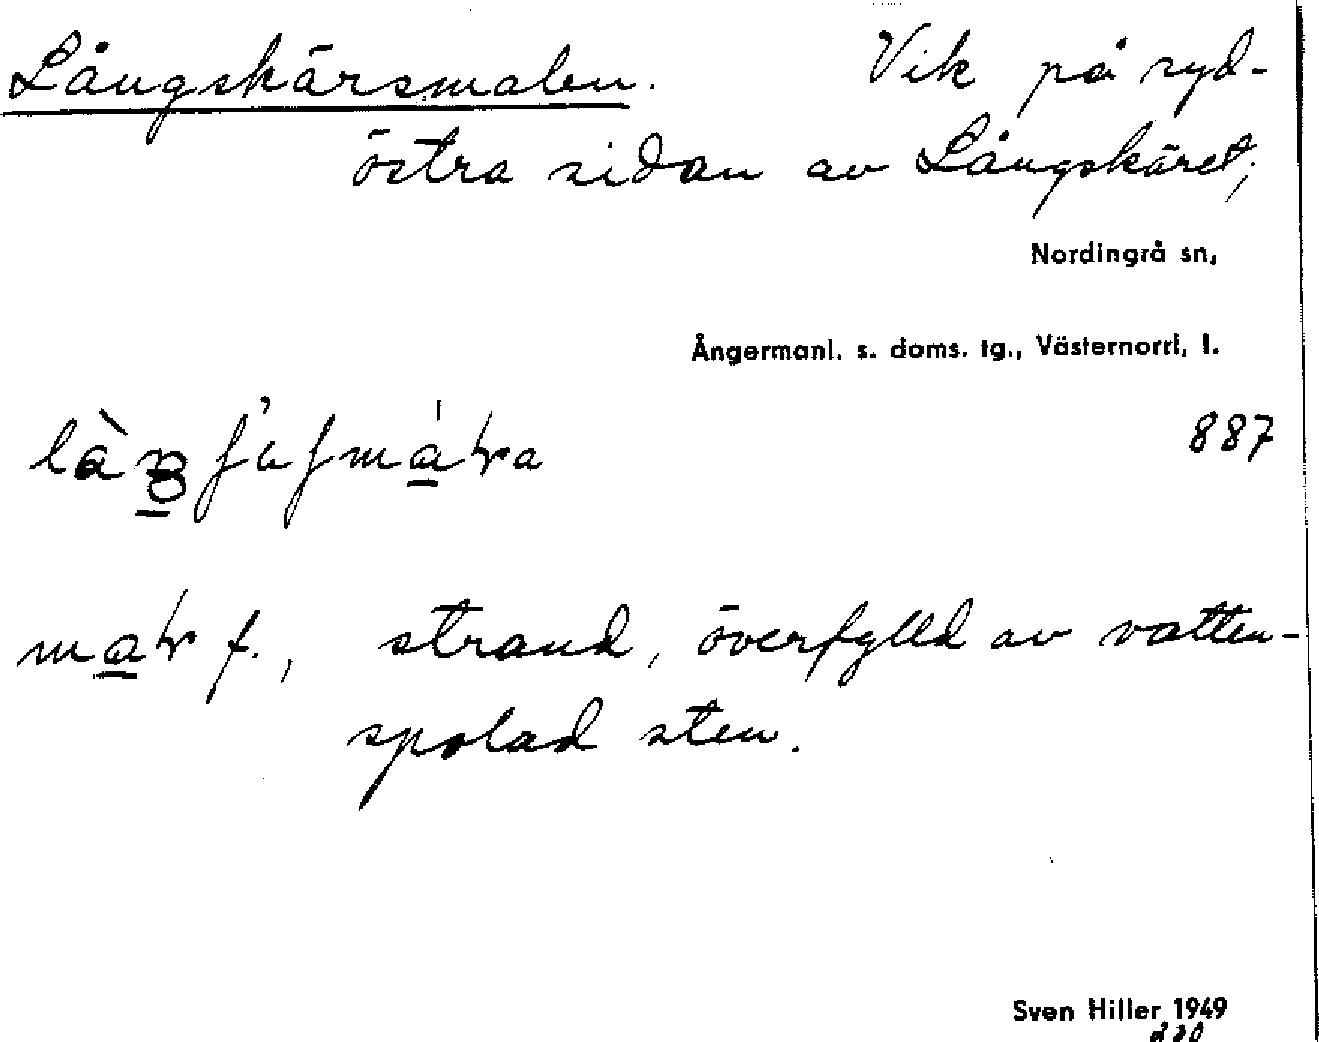 Långskärsmalen. Vik på syd-
östra sidan av Långskäret;
Nordingrå sn,
Ångermanl. s. doms. tg., Västernorrl. l.
887
f., strand, överfylld av vatten-
spolad sten.
Sven Hiller 1949
220